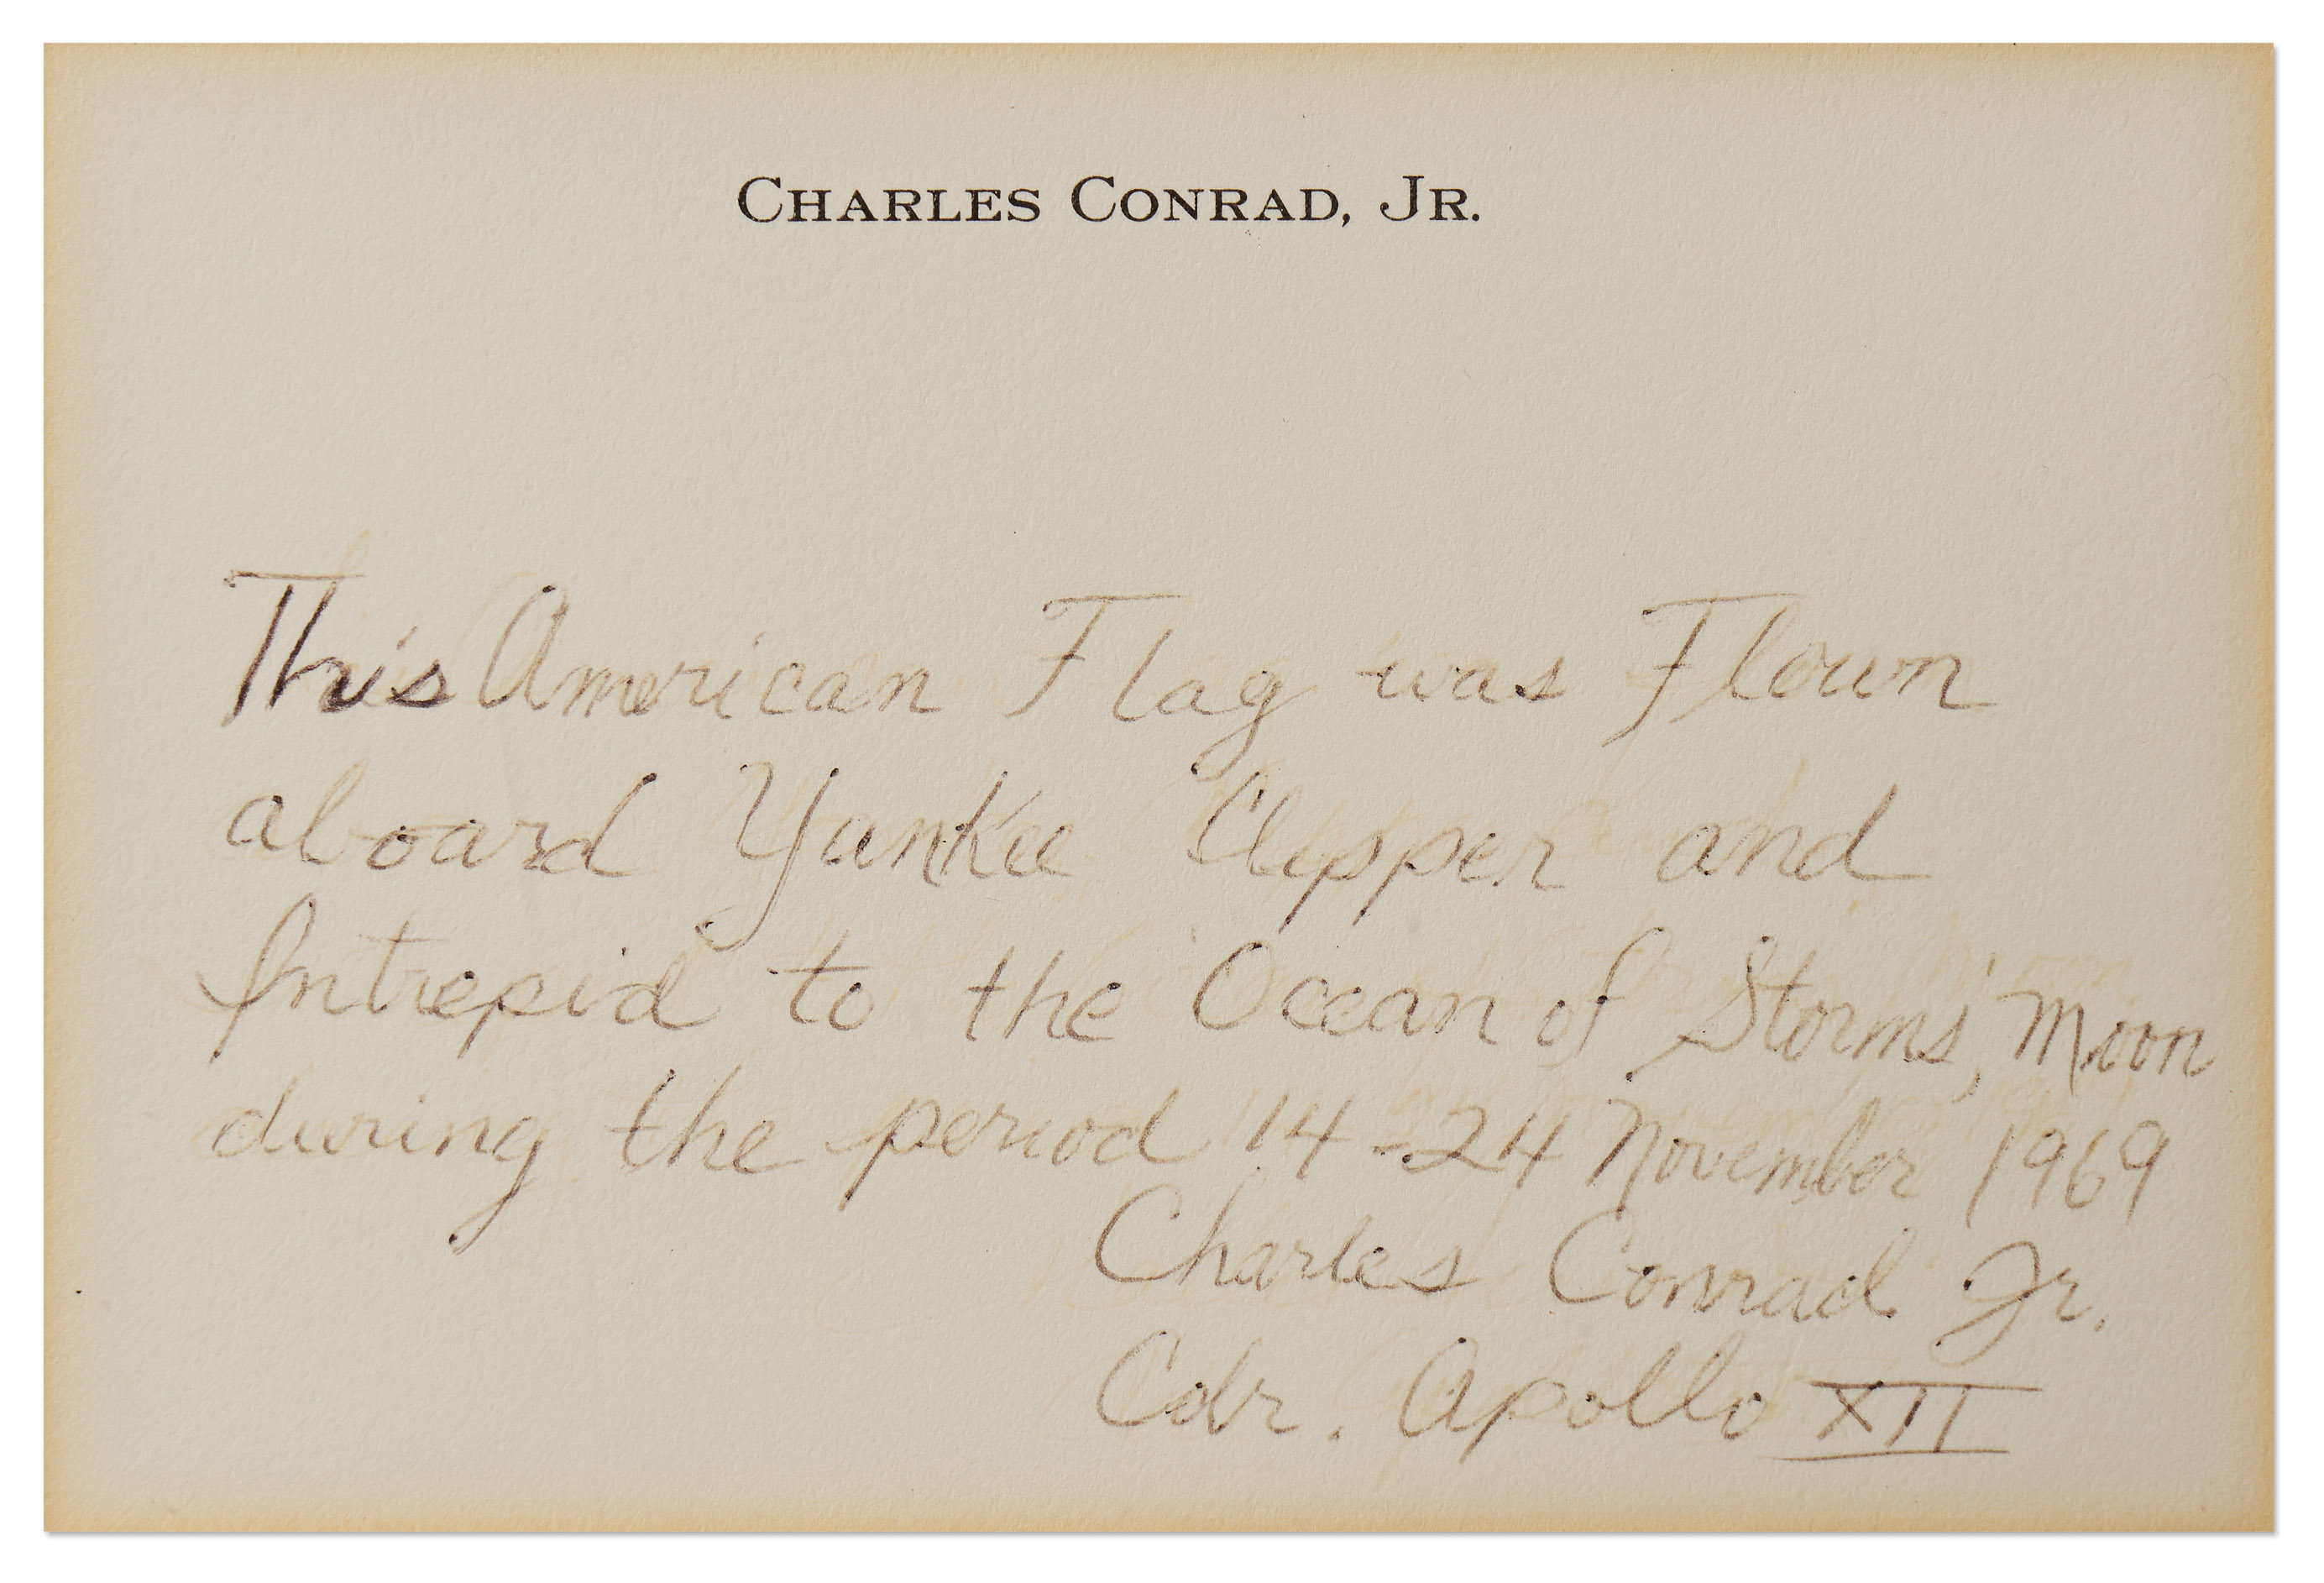 CHARLES CONRAD, JR.
This American Flag was Flown
aboard Yankee Clipper and
Intrepid to the Ocean of Storms', Moon
during the period 14-24 November 1969
Charles Conrad Jr.
Cdr. Apollo XII